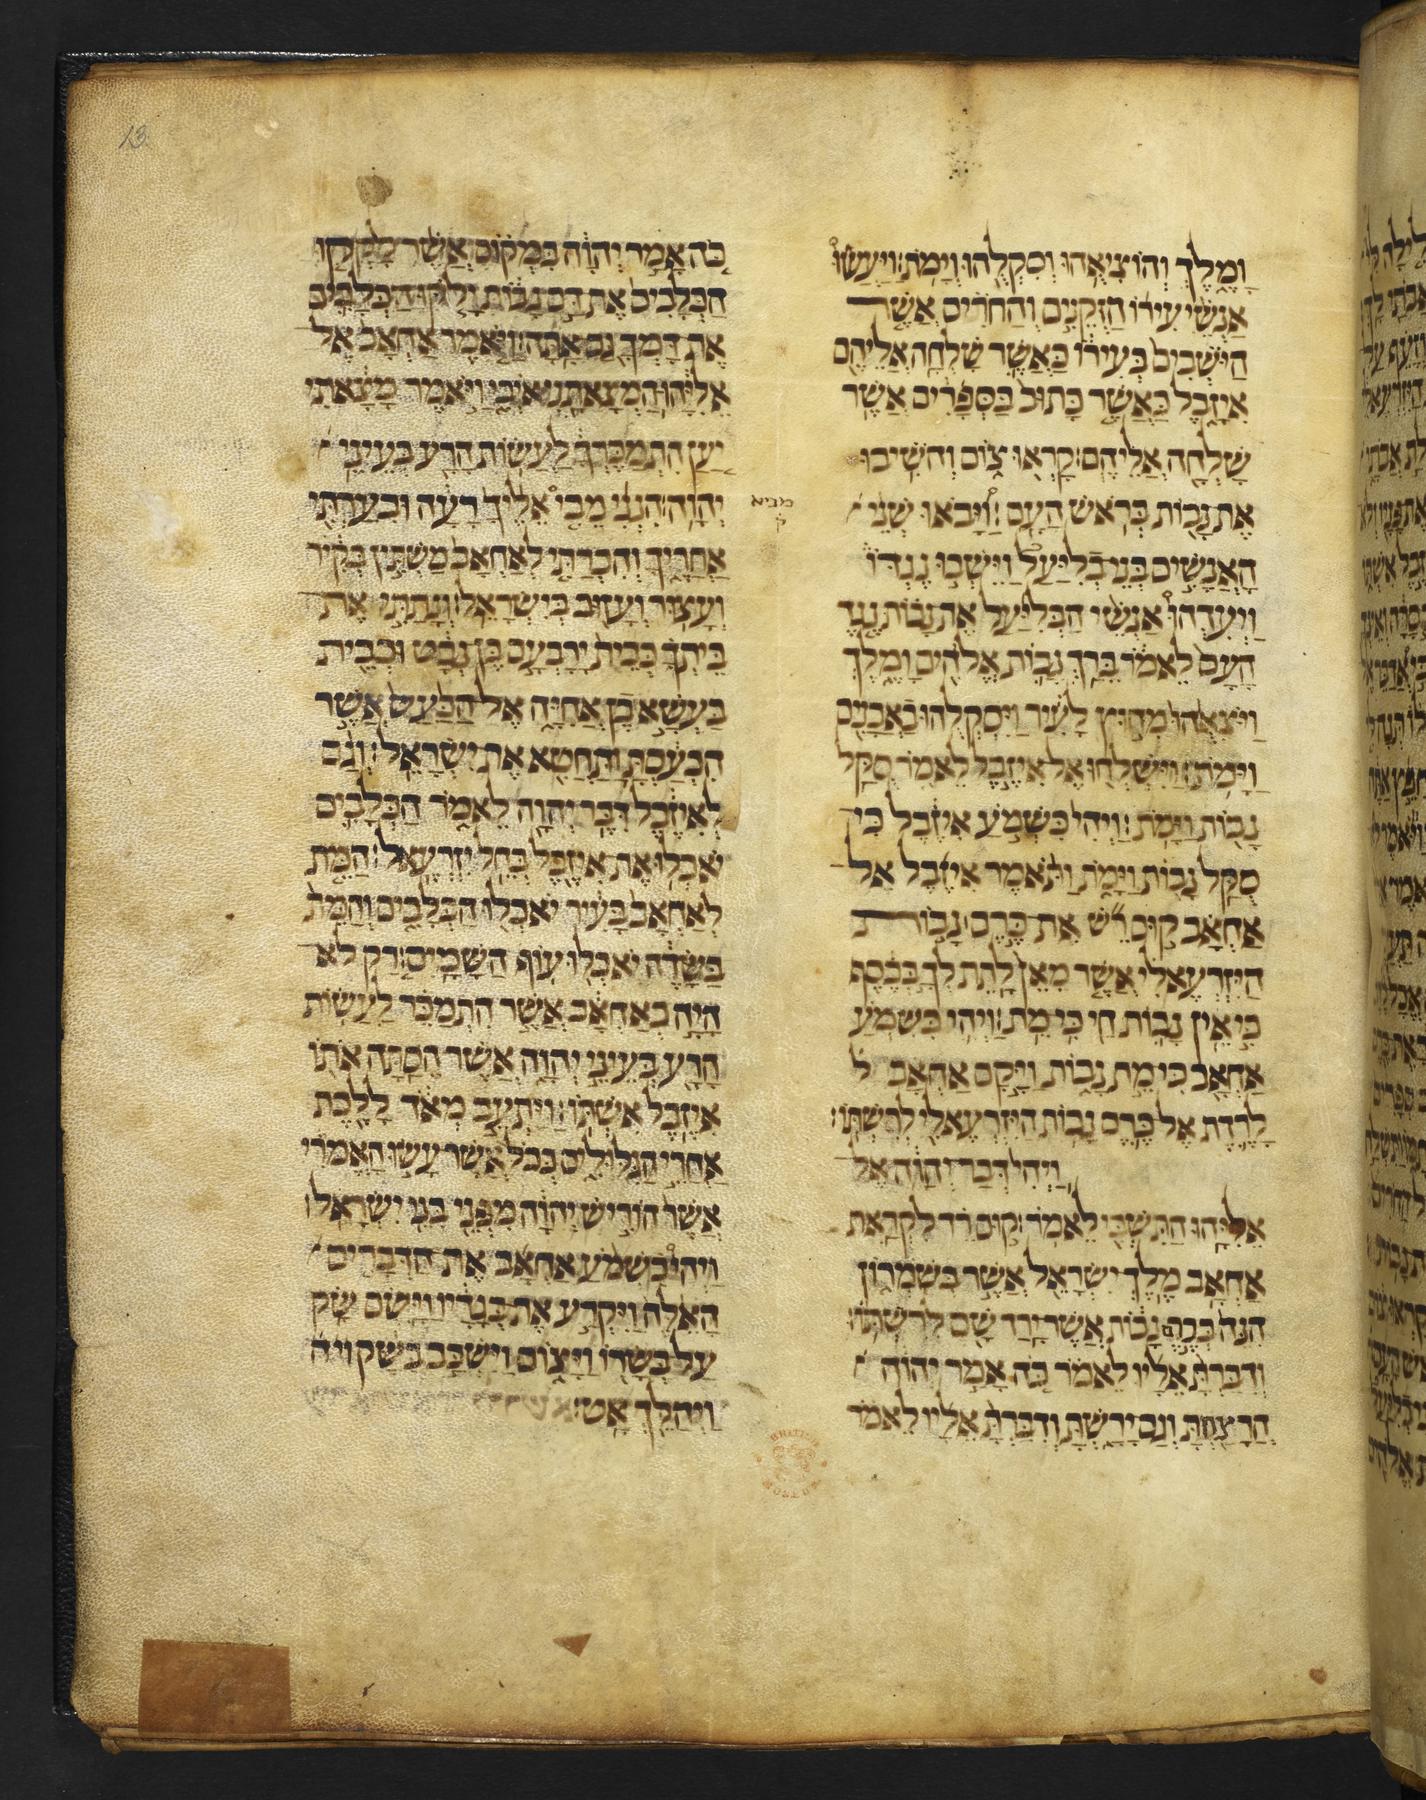 וָמֶלֶךְ וְהוֹצִיאֻהוּ וְסִקְלֻהוּ וְיָמֹת׃ וַיַּעֲשׂוּ
אַנְשֵׁי עִירוֹ הַזְּקֵנִים וְהַחֹרִים אֲשֶׁר
הַיֹּשְׁבִים בְּעִירוֹ כַּאֲשֶׁר שָׁלְחָה אֲלֵיהֶם
אִיזָבֶל כַּאֲשֶׁר כָּתוּב בַּסְּפָרִים אֲשֶׁר
שָׁלְחָה אֲלֵיהֶם׃ קָרְאוּ צוֹם וְהֹשִׁיבוּ
אֶת נָבוֹת בְּרֹאשׁ הָעָם׃ וַיָּבֹאוּ שְׁנֵי
הָאֲנָשִׁים בְּנֵי בְלִיַּעַל וַיֵּשְׁבוּ נֶגְדּוֹ
וַיְעִדֻהוּ אַנְשֵׁי הַבְּלִיַּעַל אֶת נָבוֹת נֶגֶד
הָעָם לֵאמֹר בֵּרַךְ נָבוֹת אֱלֹהִים וָמֶלֶךְ
וַיֹּצִאֻהוּ מִחוּץ לָעִיר וַיִּסְקְלֻהוּ בָאֲבָנִים
וַיָּמֹת׃ וַיִּשְׁלְחוּ אֶל אִיזֶבֶל לֵאמֹר סֻקַּל
נָבוֹת וַיָּמֹת׃ וַיְהִי כִּשְׁמֹעַ אִיזֶבֶל כִּי
סֻקַּל נָבוֹת וַיָּמֹת וַתֹּאמֶר אִיזֶבֶל אֶל
אַחְאָב קוּם רֵשׁ אֶת כֶּרֶם נָבוֹת
הַיִּזְרְעֵאלִי אֲשֶׁר מֵאֵן לָתֶת לְךָ בְכֶסֶף
כִּי אֵין נָבוֹת חַי כִּי מֵת׃ וַיְהִי כִּשְׁמֹעַ
אַחְאָב כִּי מֵת נָבוֹת וַיָּקָם אַחְאָב ל
לָרֶדֶת אֶל כֶּרֶם נָבוֹת הַיִּזְרְעֵאלִי לְרִשְׁתּוֹ׃
וַיְהִי דְּבַר יְהוָה אֶל
אֵלִיָּהוּ הַתִּשְׁבִּי לֵאמֹר׃ קוּם רֵד לִקְרַאת
אַחְאָב מֶלֶךְ יִשְׂרָאֵל אֲשֶׁר בְּשֹׁמְרוֹן
הִנֵּה בְּכֶרֶם נָבוֹת אֲשֶׁר יָרַד שָׁם לְרִשְׁתּוֹ׃
וְדִבַּרְתָּ אֵלָיו לֵאמֹר כֹּה אָמַר יְהוָה
הֲרָצַחְתָּ וְגַם יָרָשְׁתָּ וְדִבַּרְתָּ אֵלָיו לֵאמֹר
כֹּה אָמַר יְהוָה בִּמְקוֹם אֲשֶׁר לָקְקוּ
הַכְּלָבִים אֶת דַּם נָבוֹת יָלֹקּוּ הַכְּלָבִים
אֶת דָּמְךָ גַּם אָתָּה׃ וַיֹּאמֶר אַחְאָב אֶל
אֵלִיָּהוּ הַמְצָאתַנִי אֹיְבִי וַיֹּאמֶר מָצָאתִי
יַעַן הִתְמַכֶּרְךָ לַעֲשׂוֹת הָרַע בְּעֵינֵי
יְהוָה׃ הִנְנִי מֵבִי אֵלֶיךָ רָעָה וּבִעַרְתִּי
מביא
ק
אַחֲרֶיךָ וְהִכְרַתִּי לְאַחְאָב מַשְׁתִּין בְּקִיר
וְעָצוּר וְעָזוּב בְּיִשְׂרָאֵל׃ וְנָתַתִּי אֶת
בֵּיתְךָ כְּבֵית יָרָבְעָם בֶּן נְבָט וּכְבֵית
בַּעְשָׁא בֶן אֲחִיָּה אֶל הַכַּעַס אֲשֶׁר
הִכְעַסְתָּ וַתַּחֲטִא אֶת יִשְׂרָאֵל׃ וְגַם
לְאִיזֶבֶל דִּבֶּר יְהוָה לֵאמֹר הַכְּלָבִים
יֹאכְלוּ אֶת אִיזֶבֶל בְּחֵל יִזְרְעֶאל׃ הַמֵּת
לְאַחְאָב בָּעִיר יֹאכְלוּ הַכְּלָבִים וְהַמֵּת
בַּשָּׂדֶה יֹאכְלוּ עוֹף הַשָּׁמָיִם׃ רַק לֹא
הָיָה כְאַחְאָב אֲשֶׁר הִתְמַכֵּר לַעֲשׂוֹת
הָרַע בְּעֵינֵי יְהוָה אֲשֶׁר הֵסַתָּה אֹתוֹ
אִיזֶבֶל אִשְׁתּוֹ׃ וַיַּתְעֵב מְאֹד לָלֶכֶת
אַחֲרֵי הַגִּלּוּלִים כְּכֹל אֲשֶׁר עָשׂוּ הָאֱמֹרִי
אֲשֶׁר הוֹרִישׁ יְהוָה מִפְּנֵי בְּנֵי יִשְׂרָאֵל׃
וַיְהִי כִשְׁמֹעַ אַחְאָב אֶת הַדְּבָרִים
הָאֵלֶּה וַיִּקְרַע אֶת בְּגָדָיו וַיָּשֶׂם שַׂק
עַל בְּשָׂרוֹ וַיָּצוֹם וַיִּשְׁכַּב בַּשָּׂק ויה
וַיְהַלֵּךְ אַט׃
13